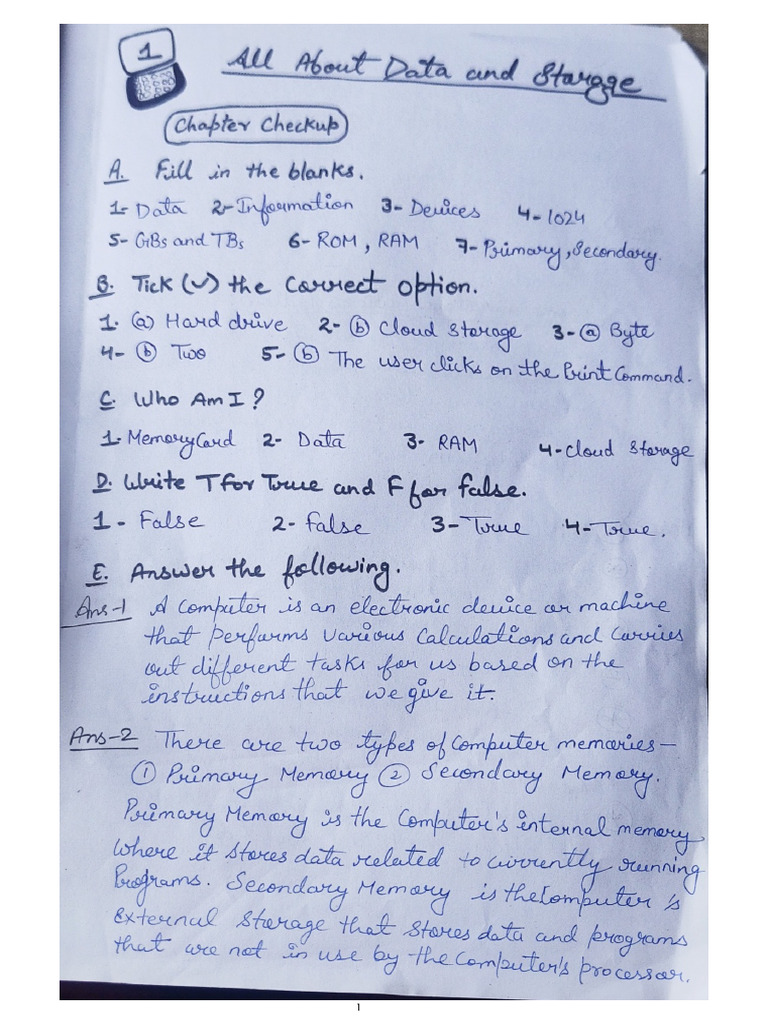 1
All About Data and Storage
Chapter Checkup
A. Fill in the blanks.
1- Data 2- Information 3- Devices 4- 1024
5- GBs and TBs 6- ROM, RAM 7- Primary, Secondary.
B. Tick (✓) the Correct option.
1. (a) Hard drive 2- (b) Cloud Storage 3- (a) Byte
4- (b) Two 5- (b) The user clicks on the Print Command.
C. Who Am I?
1. Memory Card 2- Data 3- RAM 4- Cloud Storage
D. Write T for True and F for false.
1 - False 2- false 3- True 4- True.
E. Answer the following.
Ans-1 A Computer is an electronic device or machine
that performs various Calculations and Carries
out different tasks for us based on the
instructions that we give it.
Ans-2 There are two types of Computer memories-
① Primary Memory ② Secondary Memory.
Primary Memory is the Computer's internal memory
where it stores data related to currently running
Programs. Secondary Memory is the Computer's
External Storage that stores data and programs
that are not in use by the Computer's processor.
1